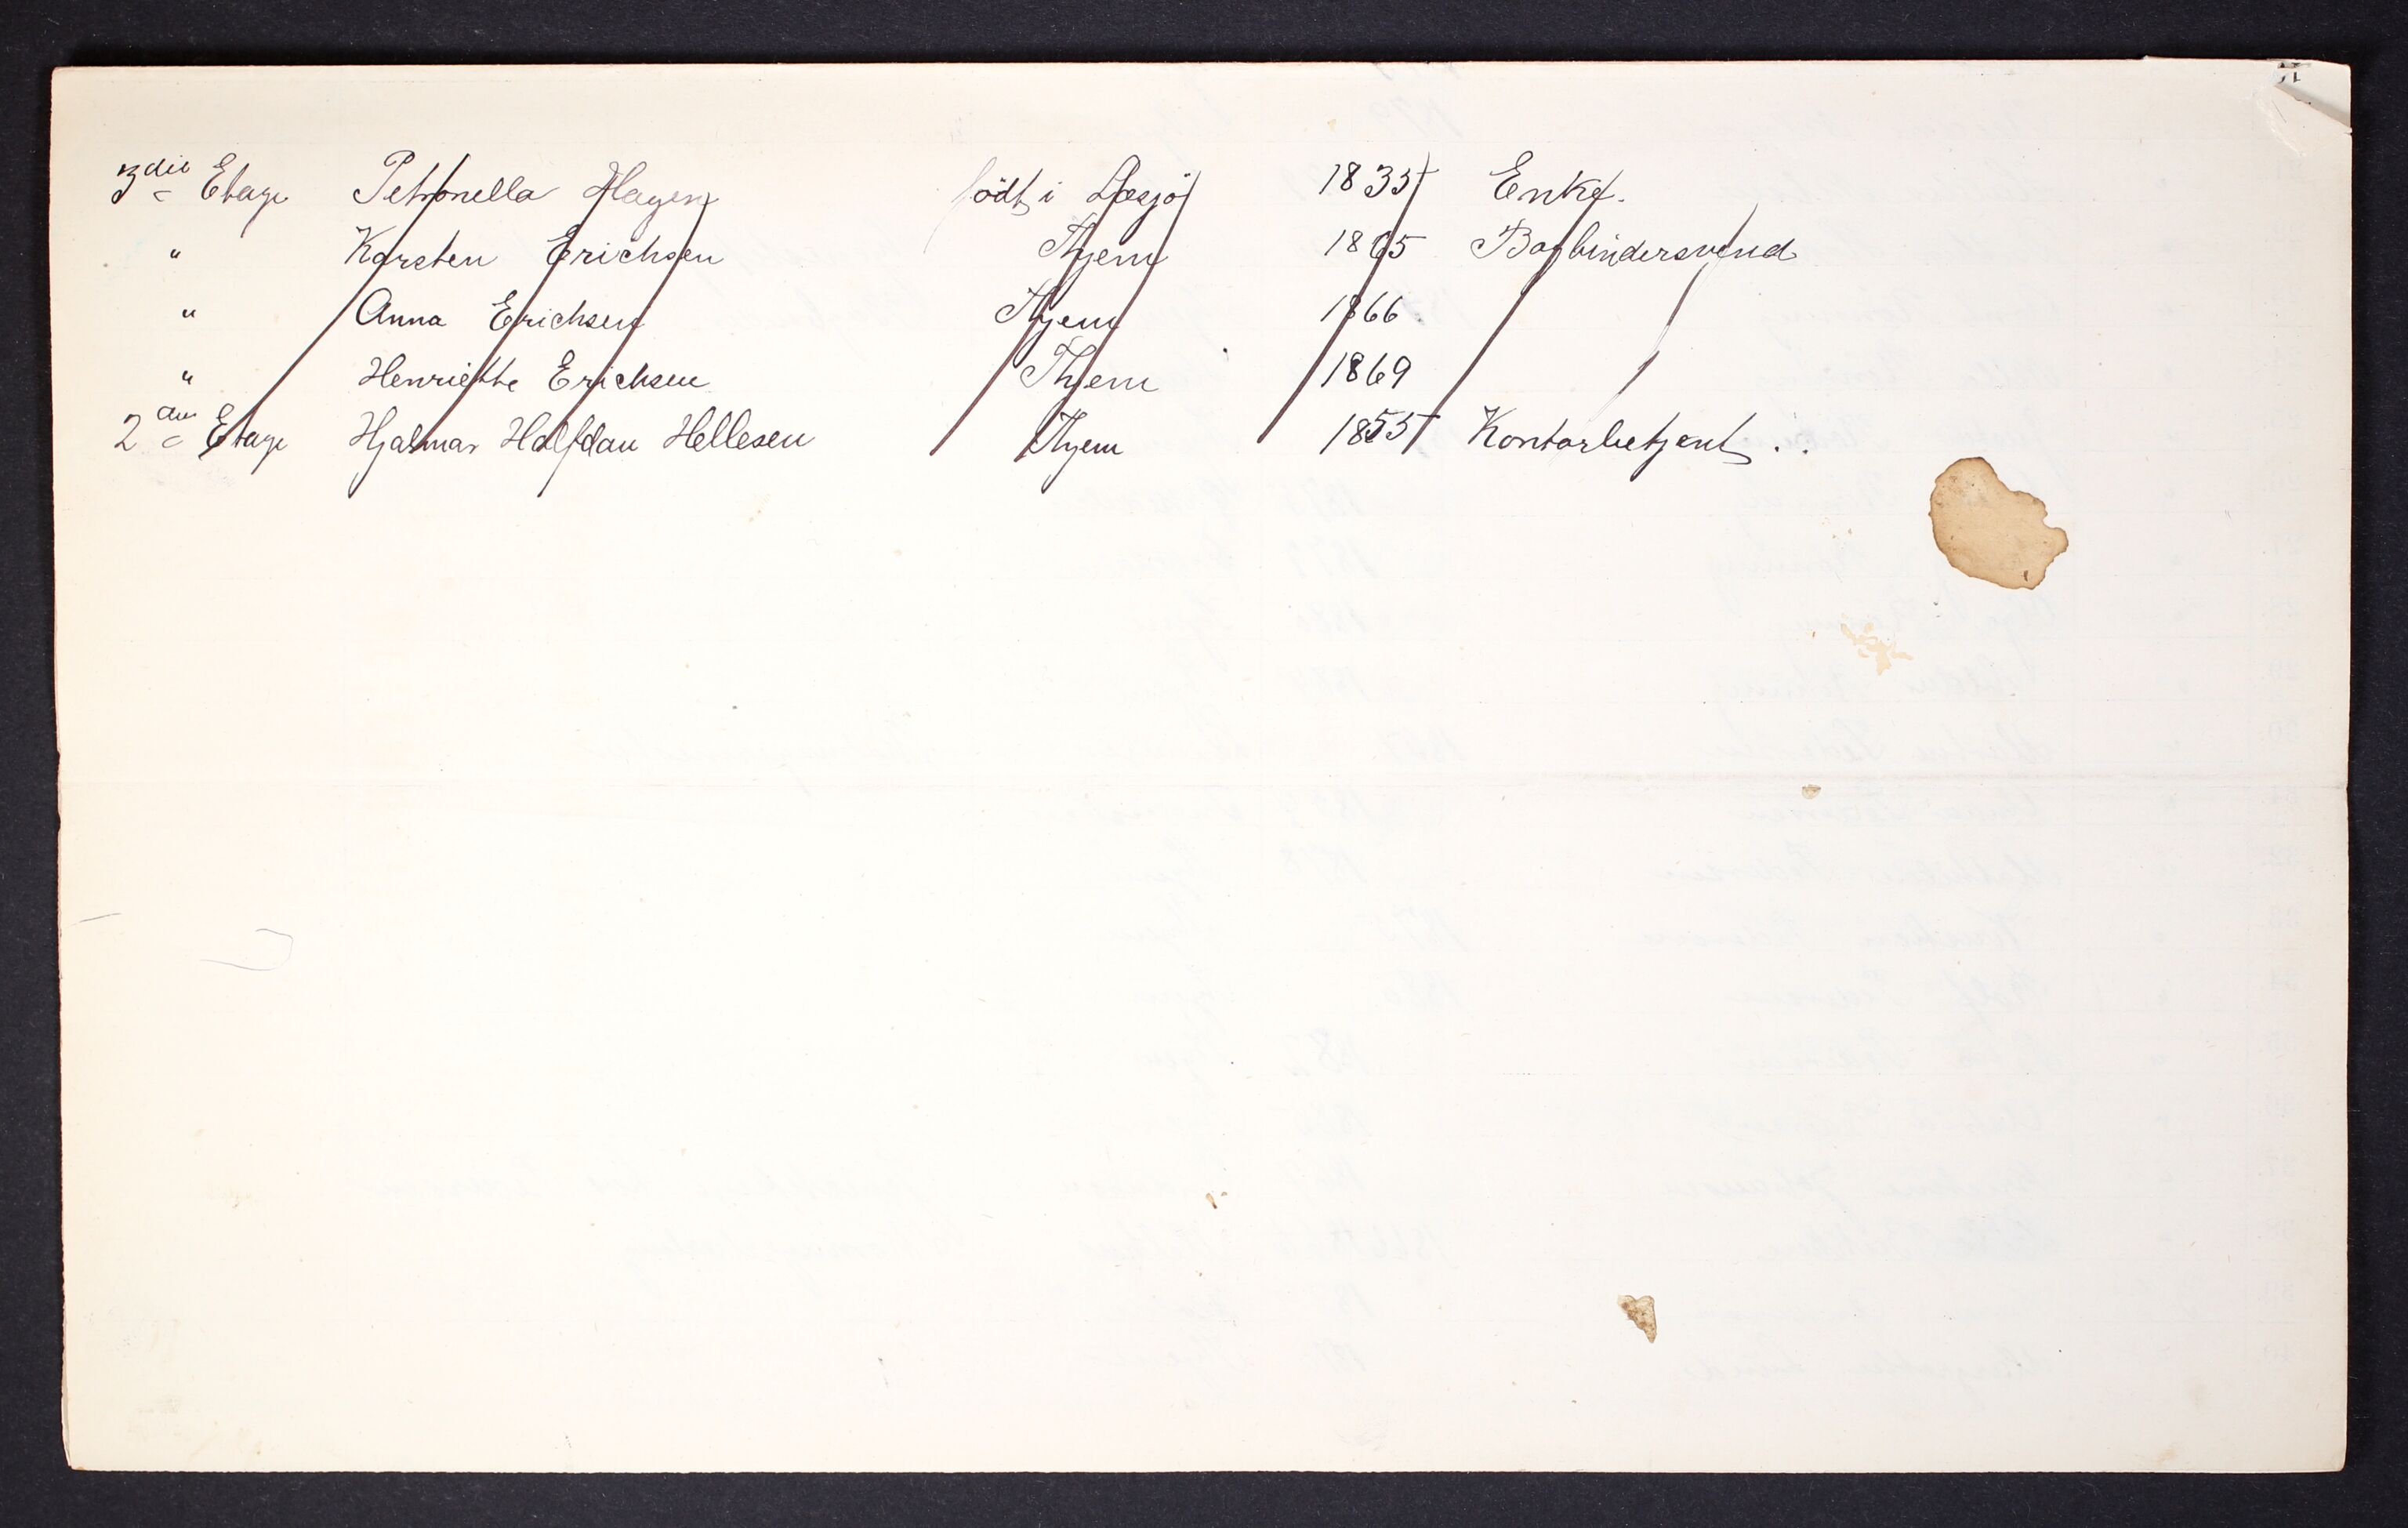 3die Etage Petronella Hagen födt i Læsjö 1835 Enke.
" Karsten Erichsen Thjem 1865 Bogbindersvend
" Anna Erichsen Thjem 1866.
" Henriette Erichsen Thjem 1869
2den Etage Hjalmar Halfdan Hellesen Thjem 1855 Kontorbetjent.